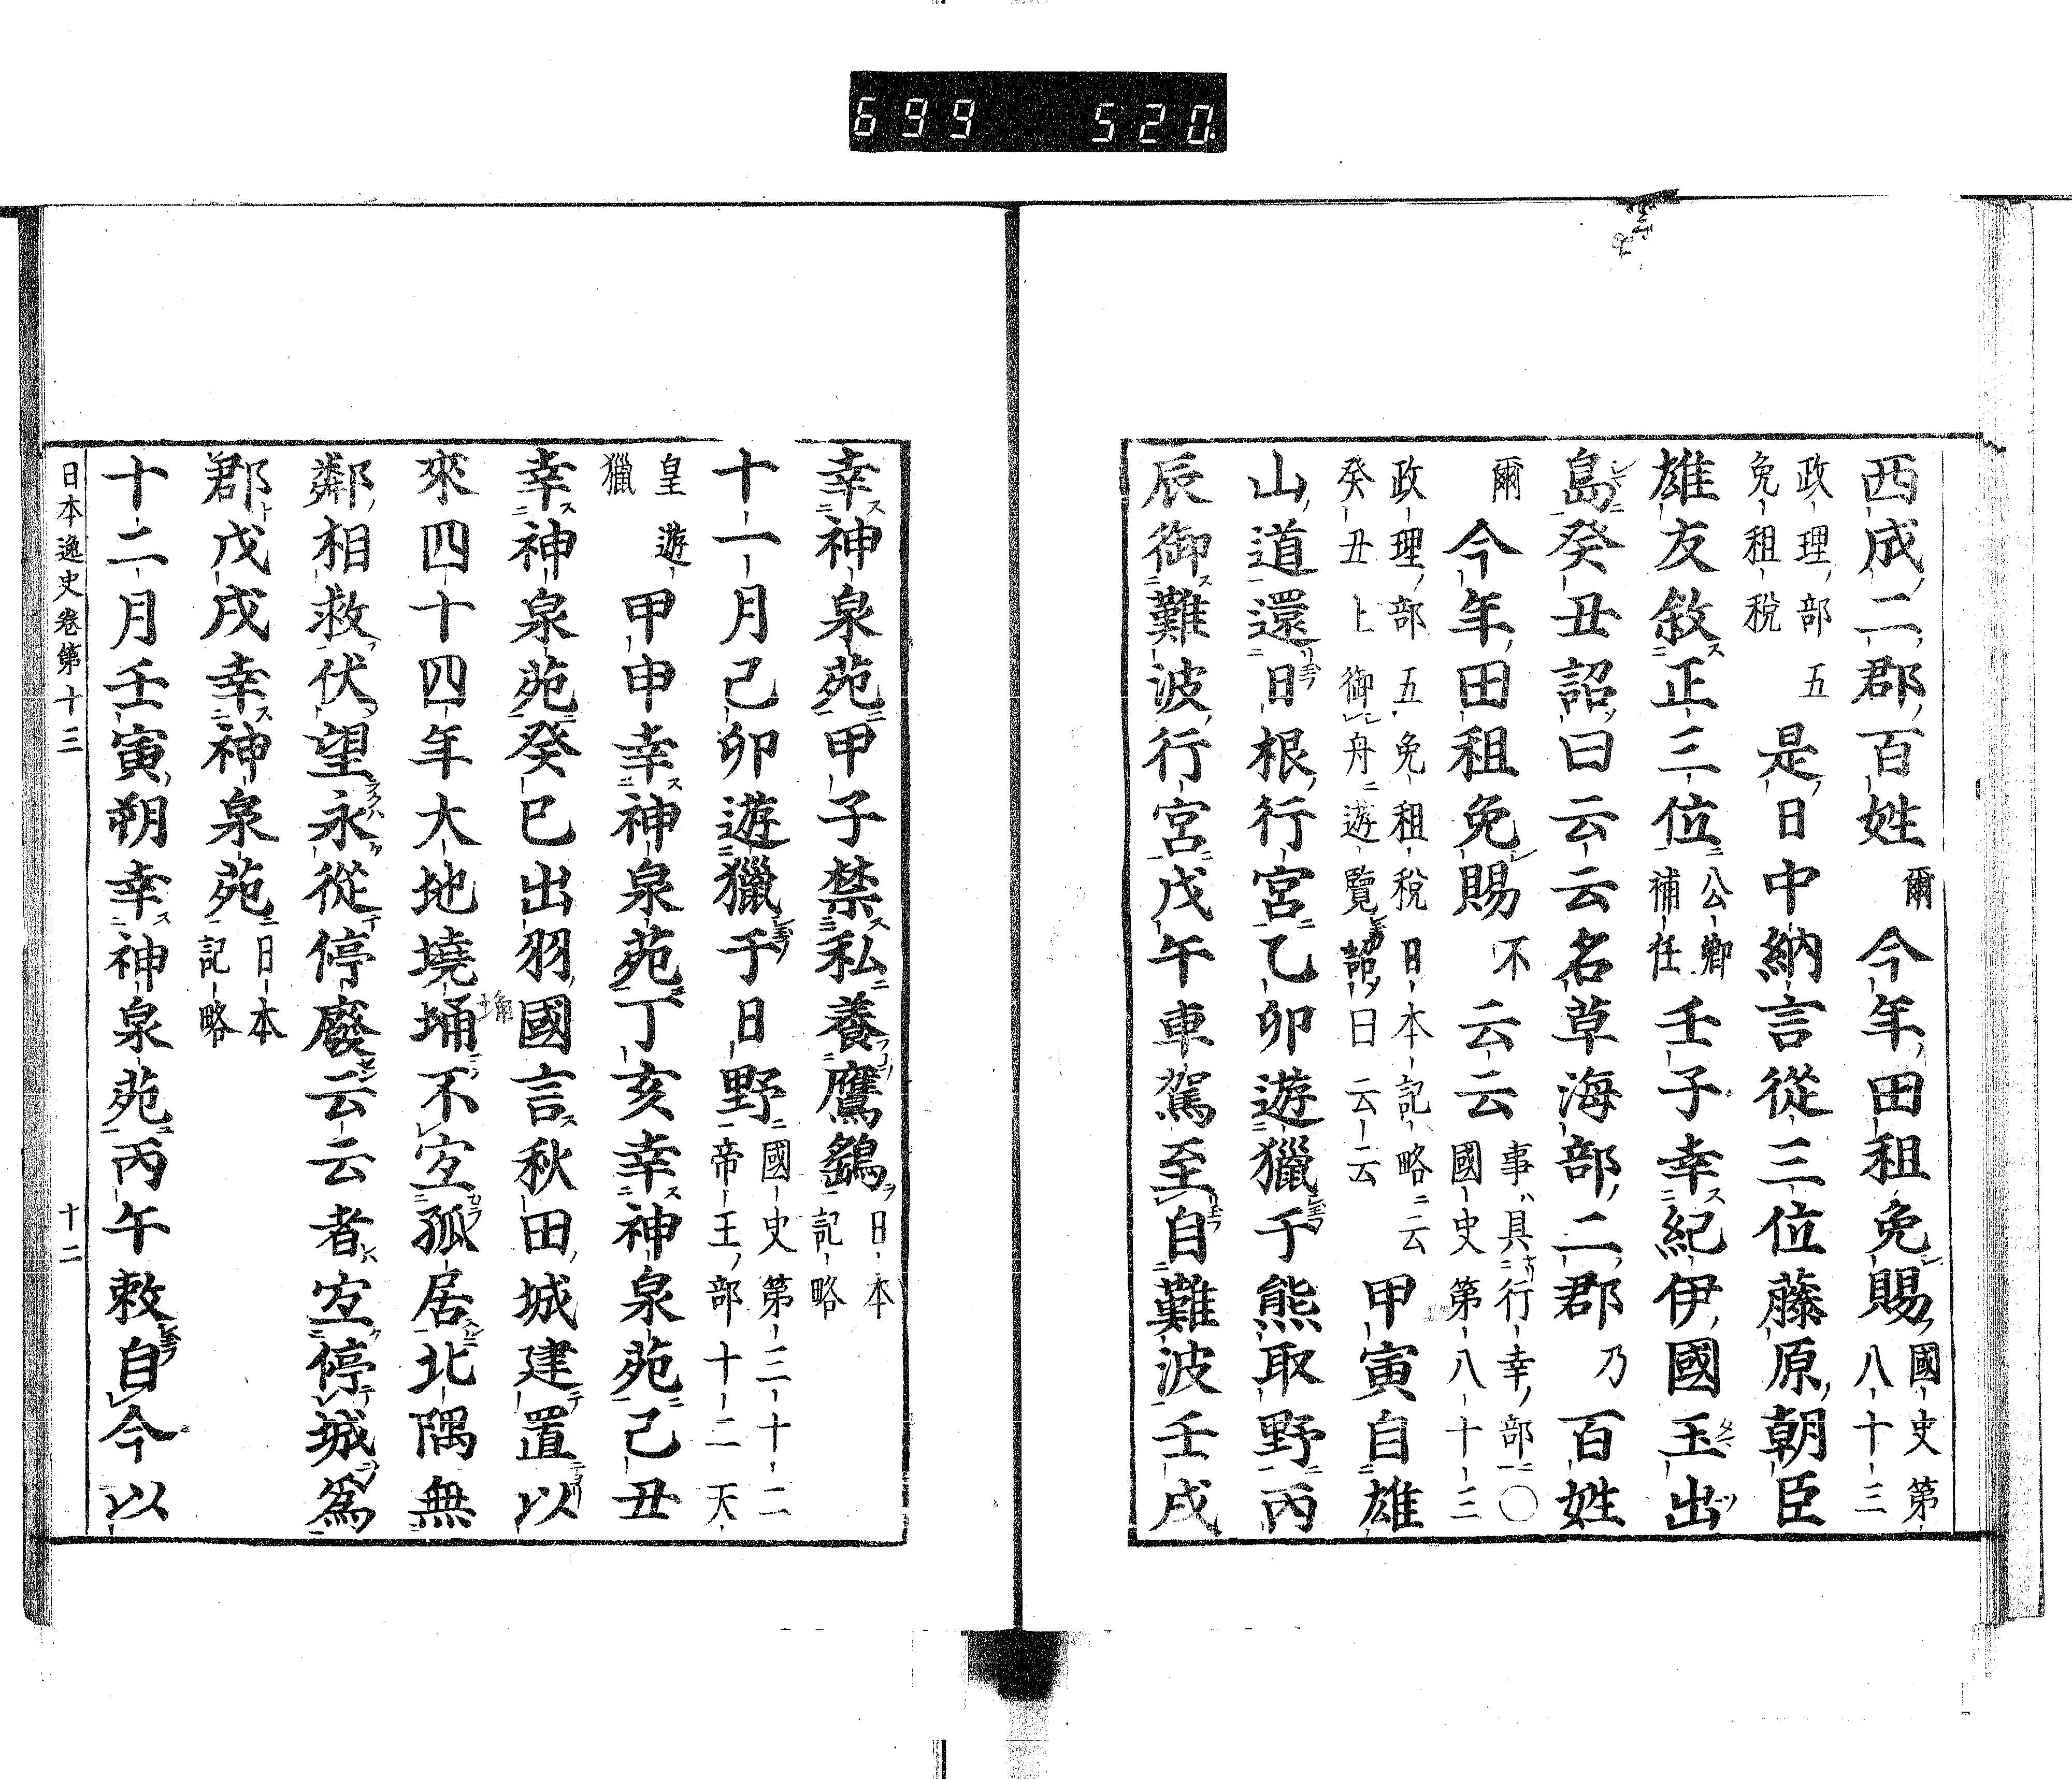 699 520.
西成二郡百姓爾今年田租免賜國史第八十三
政理部五免租税是日中納言從三位藤原朝臣
雄友敘正三位公卿補任壬子幸紀伊國玉出
島癸丑詔曰云云名草海部二郡乃百姓
爾今年田租免賜不云云事具行幸部〇國史第八十三
政理部五免租税日本記略云癸丑上御舟遊覽詔曰云云甲寅自雄
山道還日根行宮乙卯遊獵于熊取野丙
辰御難波行宮戊午車駕至自難波壬戌
幸神泉苑甲子禁私養鷹鷂日本記略
十一月己卯遊獵于日野國史第三十二帝王部十二天
皇遊獵甲申幸神泉苑丁亥幸神泉苑己丑
幸神泉苑癸巳出羽國言秋田城建置以
來四十四年大地墝埇不宐孤居北隅無
埆
鄰相救伏望永從停廢云云者宐停城爲
郡戊戌幸神泉苑日本記略
十二月壬寅朔幸神泉苑丙午敕自今以
日本逸史卷第十三 十二